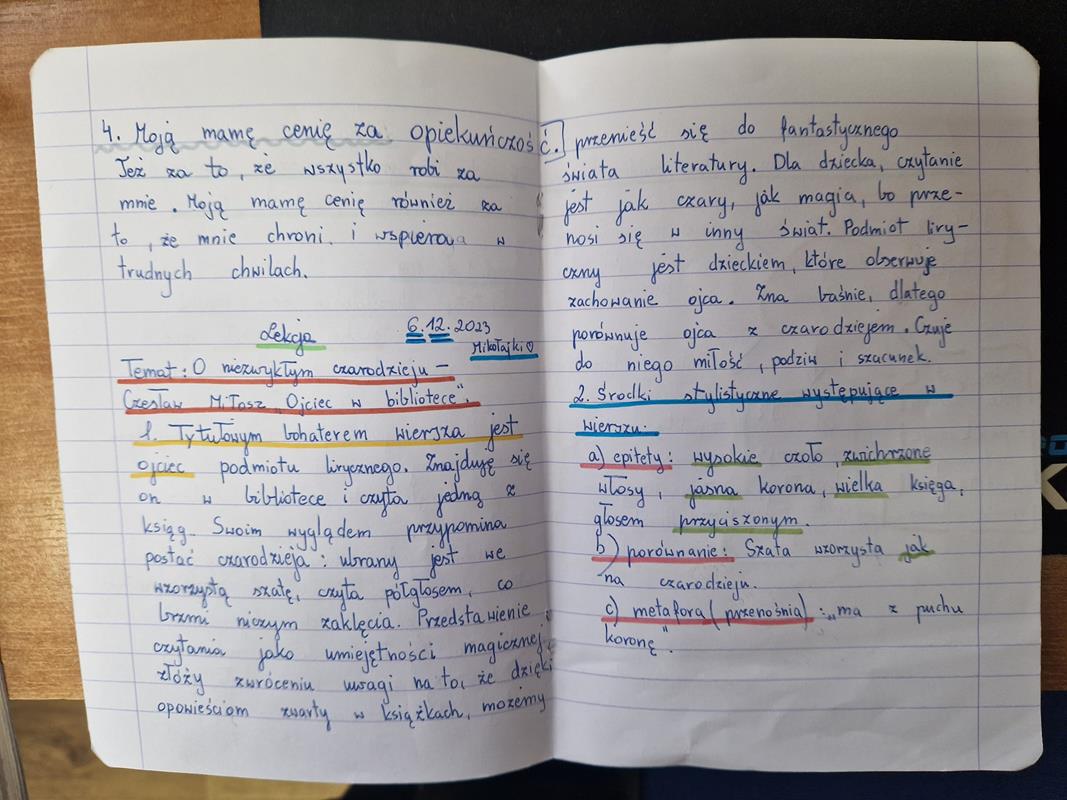 4. Moją mamę cenię za opiekuńczość.
Też za to, że wszystko robi za
mnie. Moją mamę cenię również za
to, że mnie chroni i wspiera w
trudnych chwilach.
Lekcja 6.12.2023
Mikołajki ♡
Temat: O niezwykłym czarodzieju –
Czesław Miłosz „Ojciec w bibliotece".
1. Tytułowym bohaterem wiersza jest
ojciec podmiotu lirycznego. Znajduję się
on w bibliotece i czyta jedną z
ksiąg. Swoim wyglądem przypomina
postać czarodzieja: ubrany jest we
wzorzystą szatę, czyta półgłosem, co
brzmi niczym zaklęcia. Przedstawienie
czytania jako umiejętności magicznej,
złóży zwróceniu uwagi na to, że dzięki
opowieściom zwarty w książkach, możemy
przenieść się do fantastycznego
świata literatury. Dla dziecka, czytanie
jest jak czary, jak magia, bo prze-
nosi się w inny świat. Podmiot liry-
czny jest dzieckiem, które obserwuje
zachowanie ojca. Zna baśnie, dlatego
porównuje ojca z czarodziejem. Czuje
do niego miłość, podziw i szacunek.
2. Środki stylistyczne występujące w
wierszu.
a) epitety: wysokie czoło, zwichrzone
włosy, jasna korona, wielka księga,
głosem przyciszonym.
b) porównanie: Szata wzorzysta jak
na czarodzieju.
c) metafora (przenośnia): „ma z puchu
koronę"